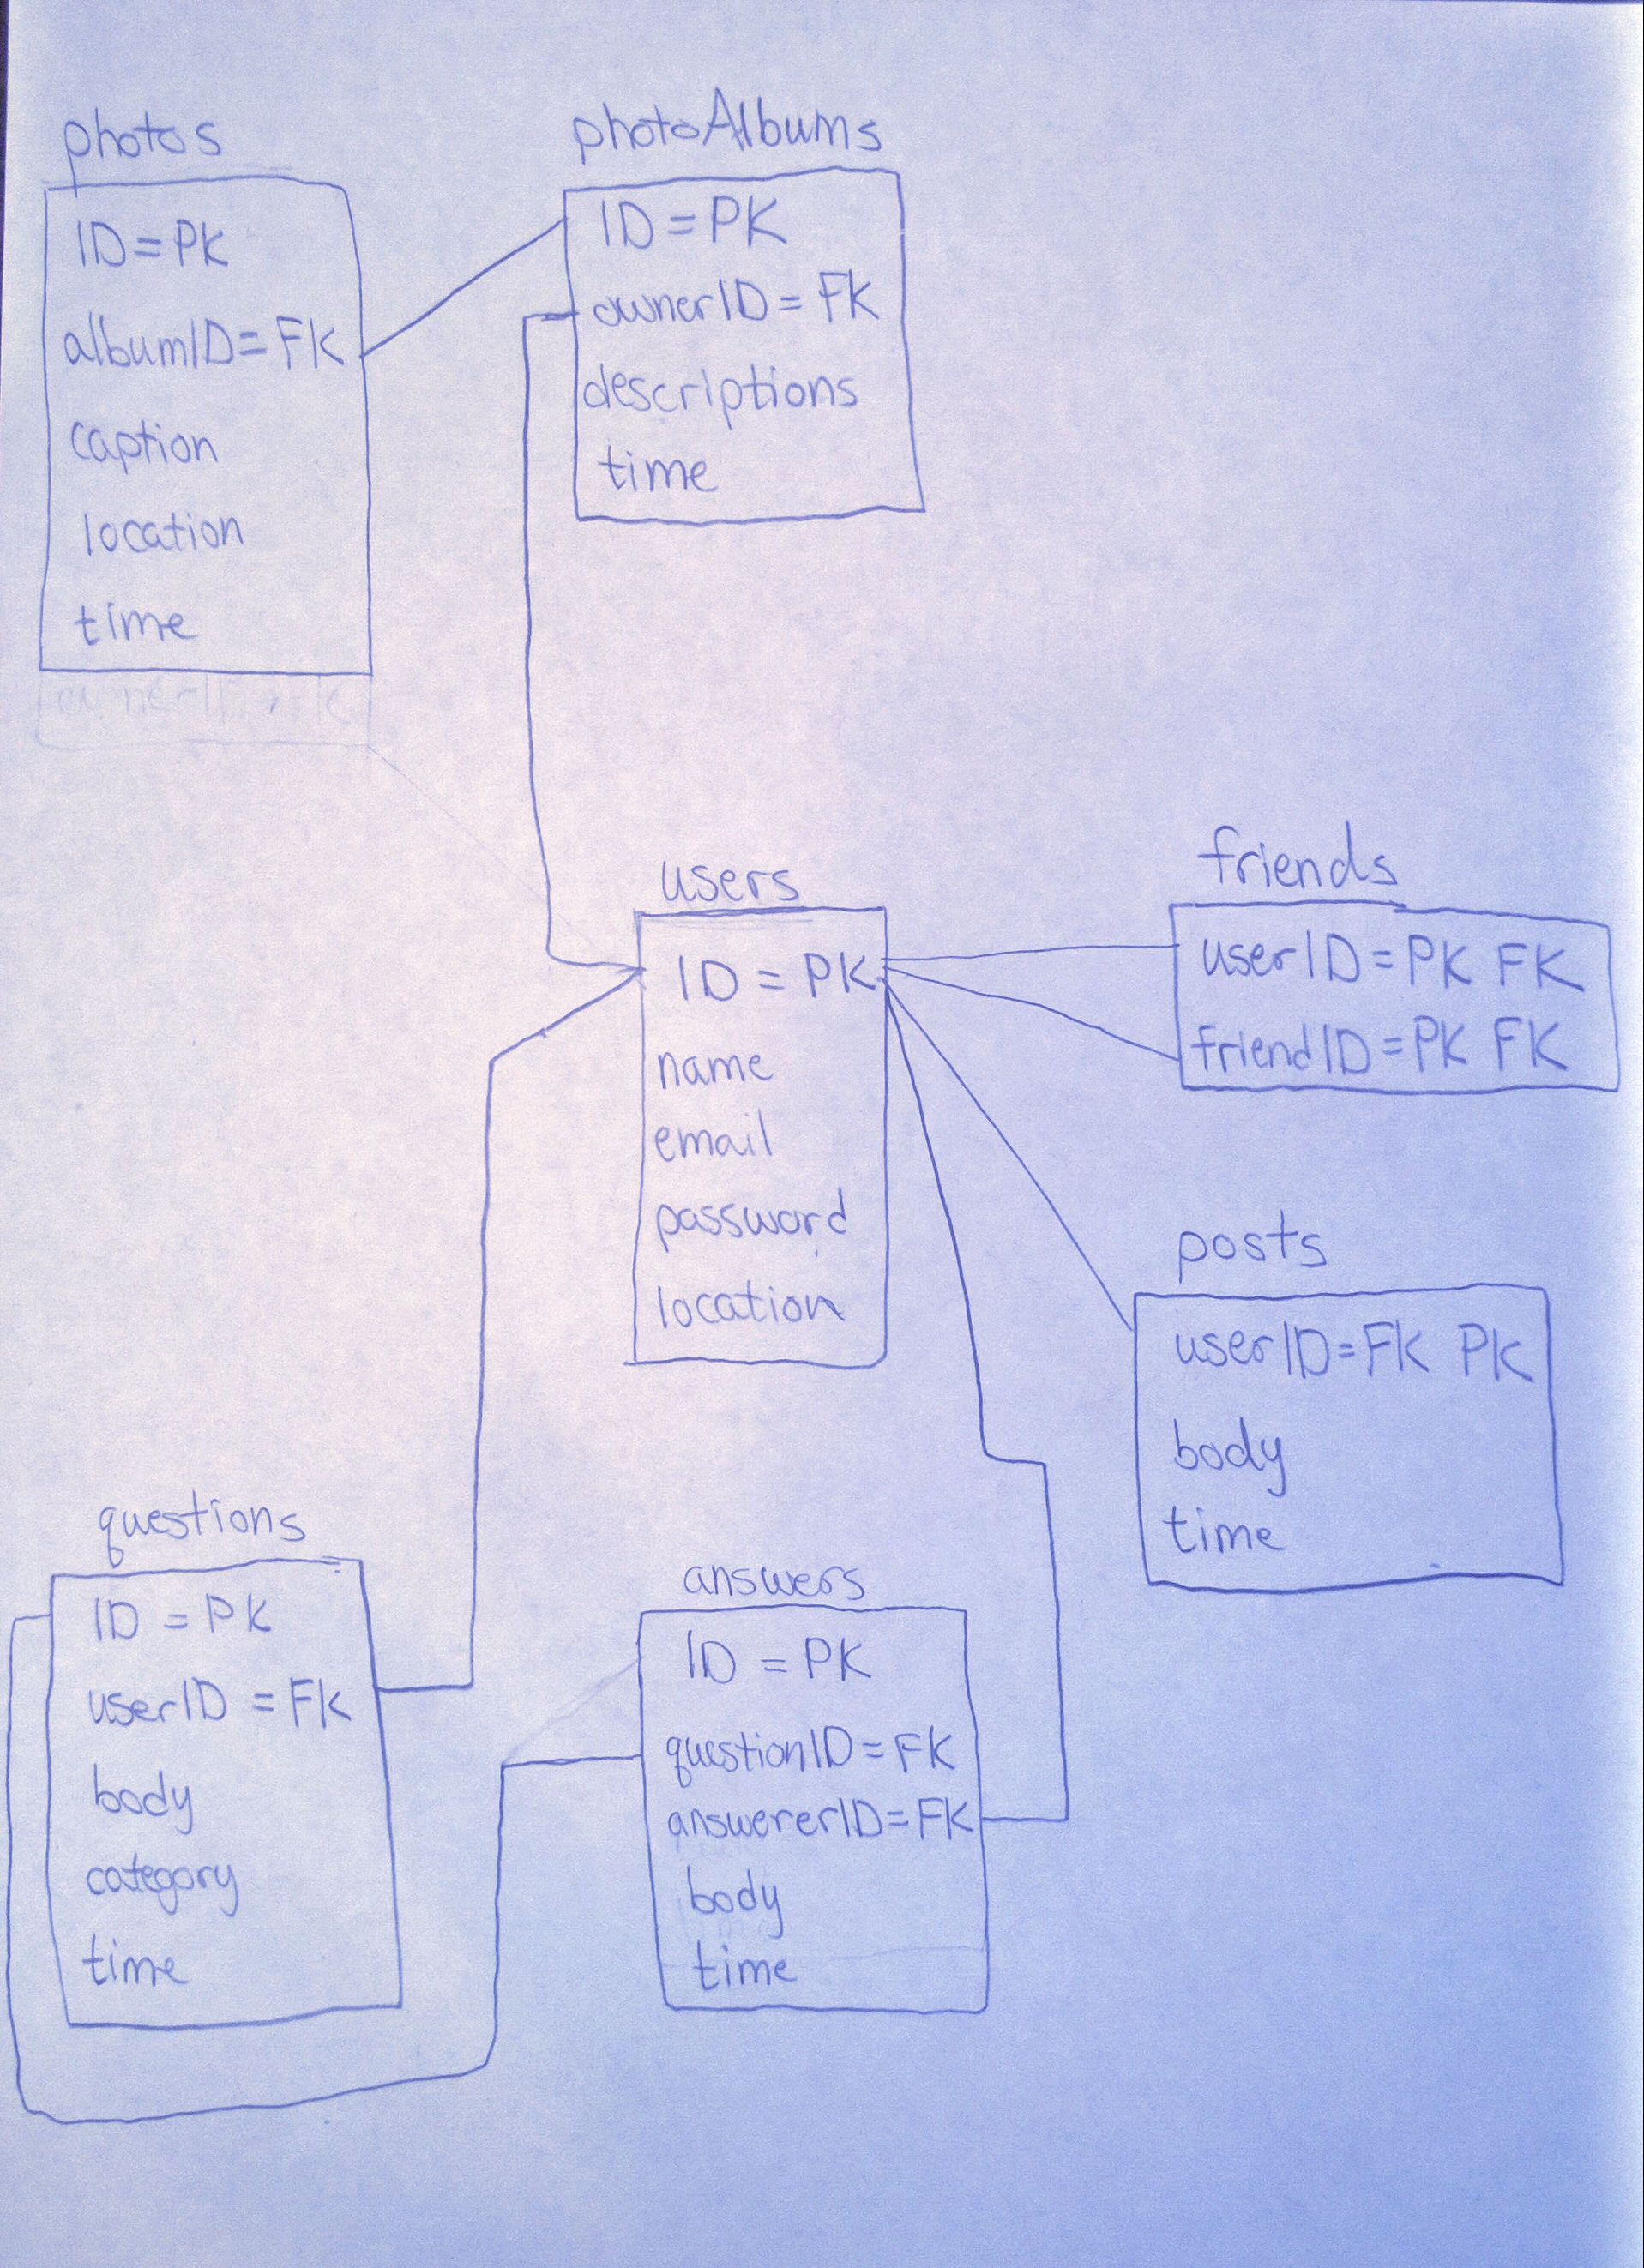 photos
ID = PK
albumID = FK
caption
location
time
photoAlbums
ID = PK
ownerID = FK
descriptions
time
users
ID = PK
name
email
password
location
friends
userID = PK FK
friendID = PK FK
posts
userID = FK PK
body
time
questions
ID = PK
userID = FK
body
category
time
answers
ID = PK
questionID = FK
answererID = FK
body
time